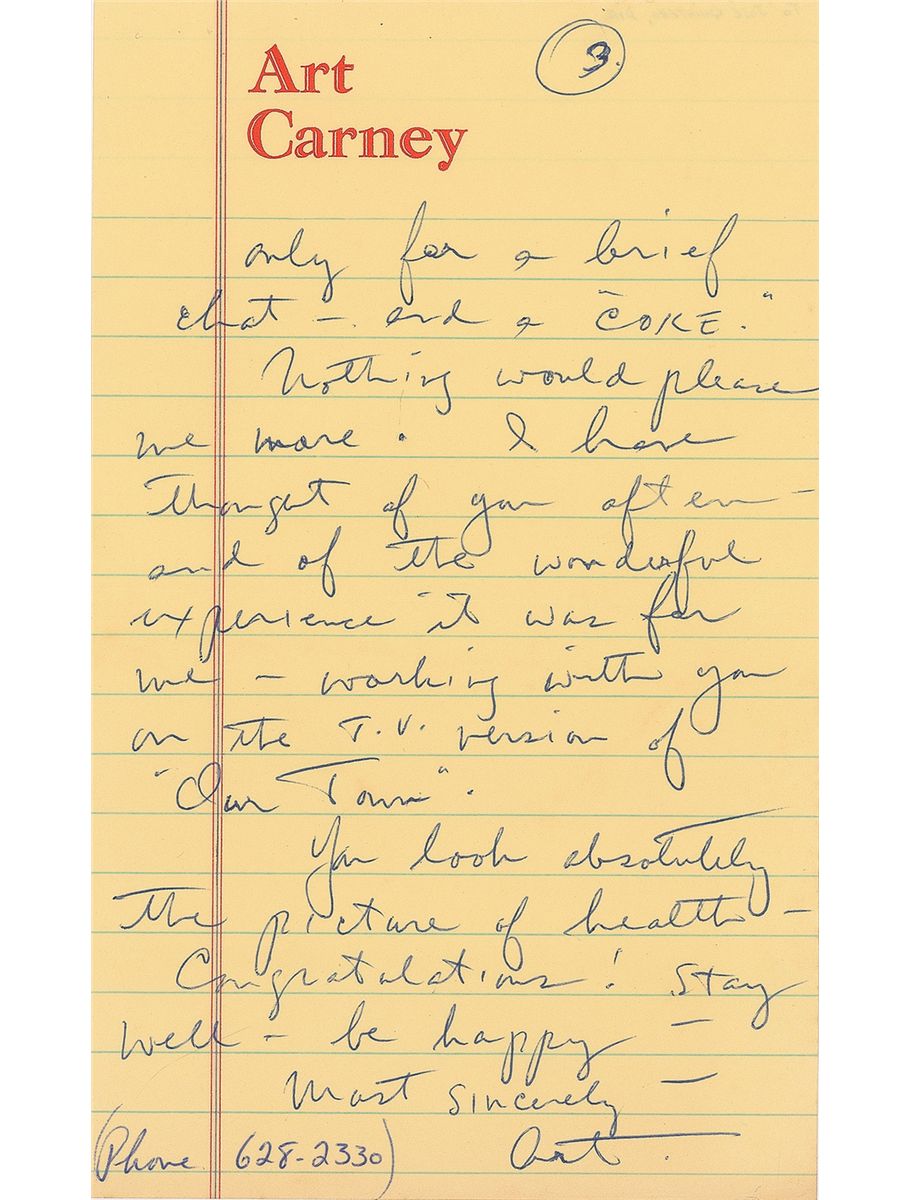 Art
Carney
3.
only for a brief
chat – and a "COKE."
Nothing would please
me more. I have
thought of you often –
and of the wonderful
experience it was for
me – working with you
on the T.V. version of
"Our Town".
You look absolutely
the picture of health –
Congratulations! Stay
well – be happy –
Most Sincerely –
Art.
(Phone 628-2330)